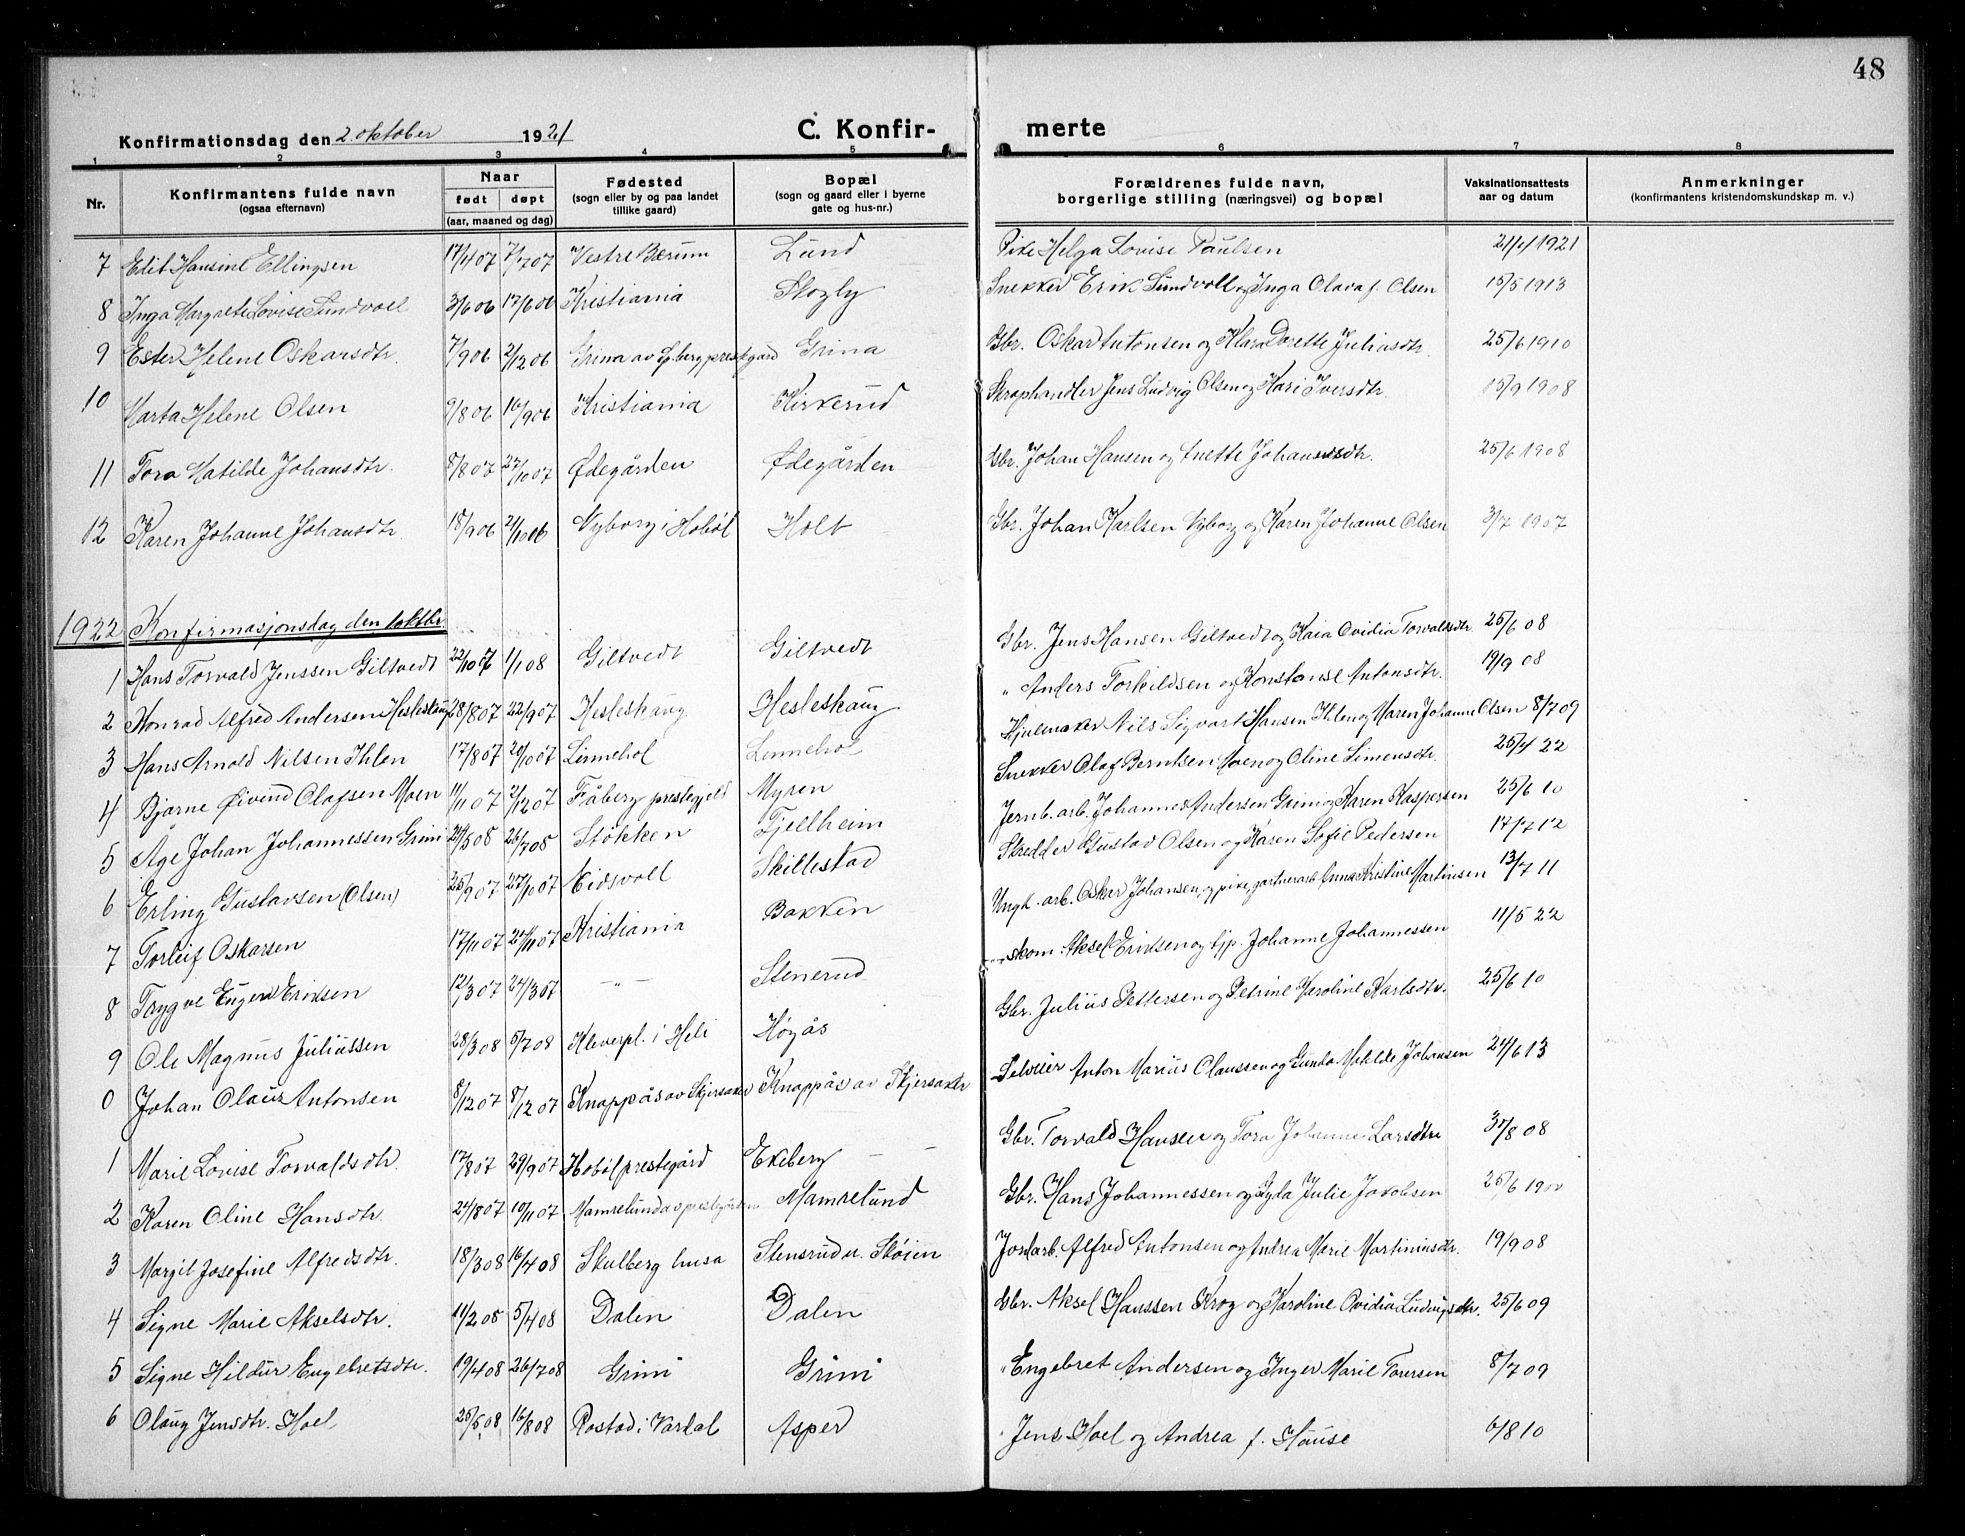 48
Konfirmationsdag den 2. oktober 1921 C. Konfir- merte
1 2 3 4 5 6 7 8
Nr. Konfirmantens fulde navn (ogsaa efternavn) Naar født døpt (aar, maaned og dag) Fødested (sogn eller by og paa landet tillike gaard) Bopæl (sogn og gaard eller i byerne gate og hus-nr.) Forældrenes fulde navn, borgerlige stilling (næringsvei) og bopæl Vaksinationsattests aar og datum Anmerkninger (konfirmantens kristendomskundskap m. v.)
7 Edit Hansine Ellingsen 17/4 07 7/7 07 Vestre Bærum Lund Pike Helga Lovise Paulsen 21/4 1921
8 Inga Margrete Lovise Sundvoll 3/6 06 17/6 06 Kristiania Skogly Snekker Erik Sundvoll og Inga Olava f. Olsen 15/5 1913
9 Ester Helene Oskarsdtr. 7/9 06 2/12 06 Grina av Spberg prestegård Grina Gbr. Oskar Antonsen og Klara Dorette Juliusdtr. 25/6 1910
10 Marta Helene Olsen 9/8 06 16/9 06 Kristiania Kirkerud Skraphandler Jens Ludvig Olsen og Kari Iversdtr 15/9 1908
11 Tora Matilde Johansdtr. 8/8 07 27/10 07 Ødegården Ødegården Gbr. Johan Hansen og Anette Johannesdtr. 25/6 1908
12 Karen Johanne Johansdtr. 18/9 06 21/10 06 Nyborg i Hobøl Holt Gbr. Johan Karlsen Nyborg og Karen Johanne Olsen 3/7 1907
1922 Konfirmasjonsdag den 1 oktbr.
1 Hans Torvald Jenssen Giltvedt 22/10 07 1/1 08 Giltvedt Giltvedt Gbr. Jens Hansen Giltvedt og Kaia Ovidia Torvaldsdtr 25/6 08
2 Konrad Alfred Andersen Hesleskaug 28/8 07 22/9 07 Hesleskaug Hesleskaug " Anders Torkildsen og Konstanse Antonsdtr. 19/9 08
3 Hans Arnold Nilsen Ihlen 17/8 07 20/10 07 Linnehol Linnehol Hjulmaker Nils Sigvart Hansen Ihlen og Maren Johanne Olsen 8/7 09
4 Bjarne Øivind Olafsen Moen 11/11 07 2/12 07 Fåberg prestegjeld Myren Snekker Olaf Berntsen Moen og Oline Simensdtr. 25/4 22
5 Åge Johan Johannessen Grini 24/5 08 26/7 08 Støkken Fjellheim Jernb. arb. Johannes Andersen Grini og Karen Kaspersen 25/6 10
6 Erling Gustavsen (Olsen) 25/9 07 27/10 07 Eidsvoll Skillestad Skredder Gustav Olsen og Karen Sofie Pedersen 17/7 12
7 Torleif Oskarsen 17/11 07 27/11 07 Kristiania Bakken Ungk. arb. Oskar Johansen, og pike, gartnerarb. Anna Kristine Martinsen 13/7 11
8 Trygve Eugen Eriksen 12/3 07 24/3 07 — " — Stenerud skom. Aksel Eriksen og tjp. Johanne Johannessen 11/5 22
9 Ole Magnus Juliussen 28/3 08 5/7 08 Kleverpl. i Heli Høgås Gbr. Julius Pettersen og Petrine Karoline Karlsdtr. 25/6 10
0 Johan Olaus Antonsen 8/12 07 8/12 07 Knappås av Skjersaker Knappås av Skjersaker Selveier Anton Marius Claussen og Gunda Matilde Johansen 24/6 13
1 Marie Lovise Torvaldsdtr. 17/8 07 29/9 07 Hobøl prestegård Ekeberg — — Gbr. Torvald Hansen og Tora Johanne Larsdtr 31/8 08
2 Karen Oline Hansdtr. 24/8 07 10/11 07 Mamrelund av prestegården Mamrelund Gbr. Hans Johannessen og Julie Jakobsen 25/6
3 Margit Josefine Alfredsdtr. 18/3 08 16/4 08 Skulberg husa Stensrud u. Skøien Jordarb. Alfred Antonsen og Andrea Marie Martiniusdtr. 19/9 08
4 Signe Marie Akselsdtr. 11/2 08 5/4 08 Dalen Dalen Gbr. Aksel Hanssen Krog og Karoline Ovidia Ludvigsdtr. 25/6 09
5 Signe Hildur Engebretsdtr. 19/4 08 26/7 08 Grini Grini " Engebret Andersen og Inger Marie Toresen 8/7 09
6 Olaug Jensdtr. Hoel 25/5 08 16/8 08 Rostad i Vardal Asper " Jens Hoel og Andrea f. Hause 6/8 10